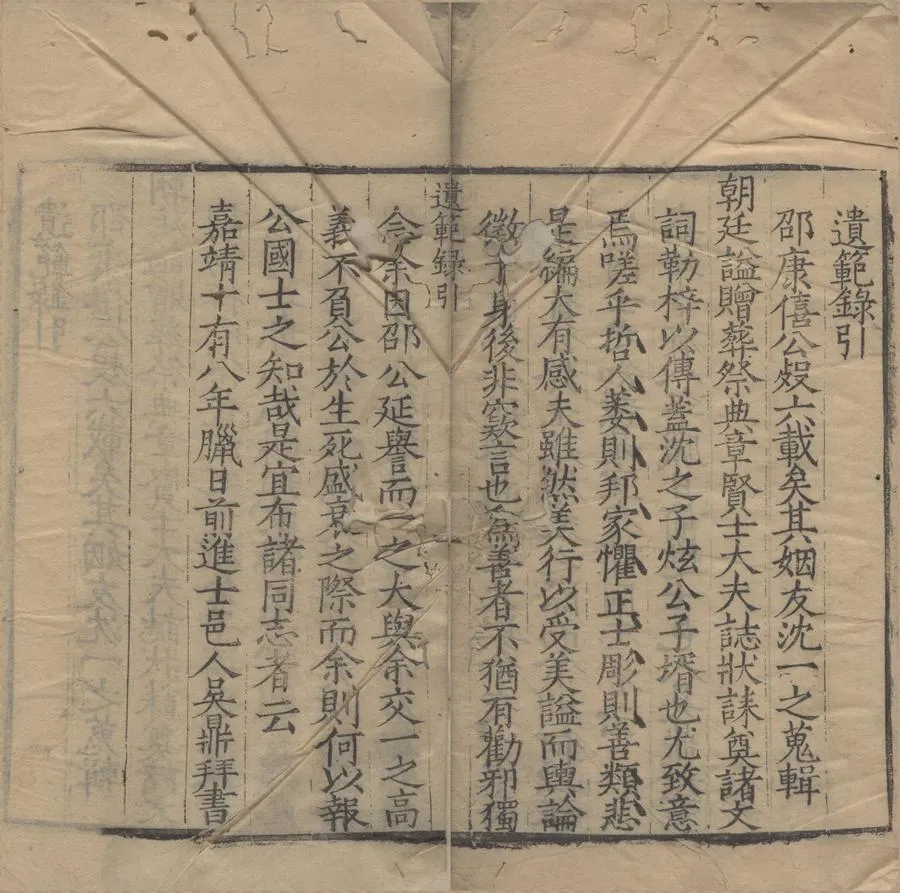 遺範錄引
邵康僖公歿六載矣其姻友沈一之蒐輯
朝廷謚贈葬祭典章賢士大夫誌狀誄奠諸文
詞勒梓以傳蓋沈之子炫公子壻也尤致意
焉嗟乎哲人萎則邦家懼正士彫則善類悲
是編大有感夫雖然美行以受美謚而輿論
徵于身後非窾言也為善者不猶有勸邪獨
遺範錄引
念余因邵公延譽而一之大與余交一之高
義不負公於生死盛衰之際而余則何以報
公國士之知哉是宜布諸同志者云
嘉靖十有八年臘日前進士邑人吳鼎拜書